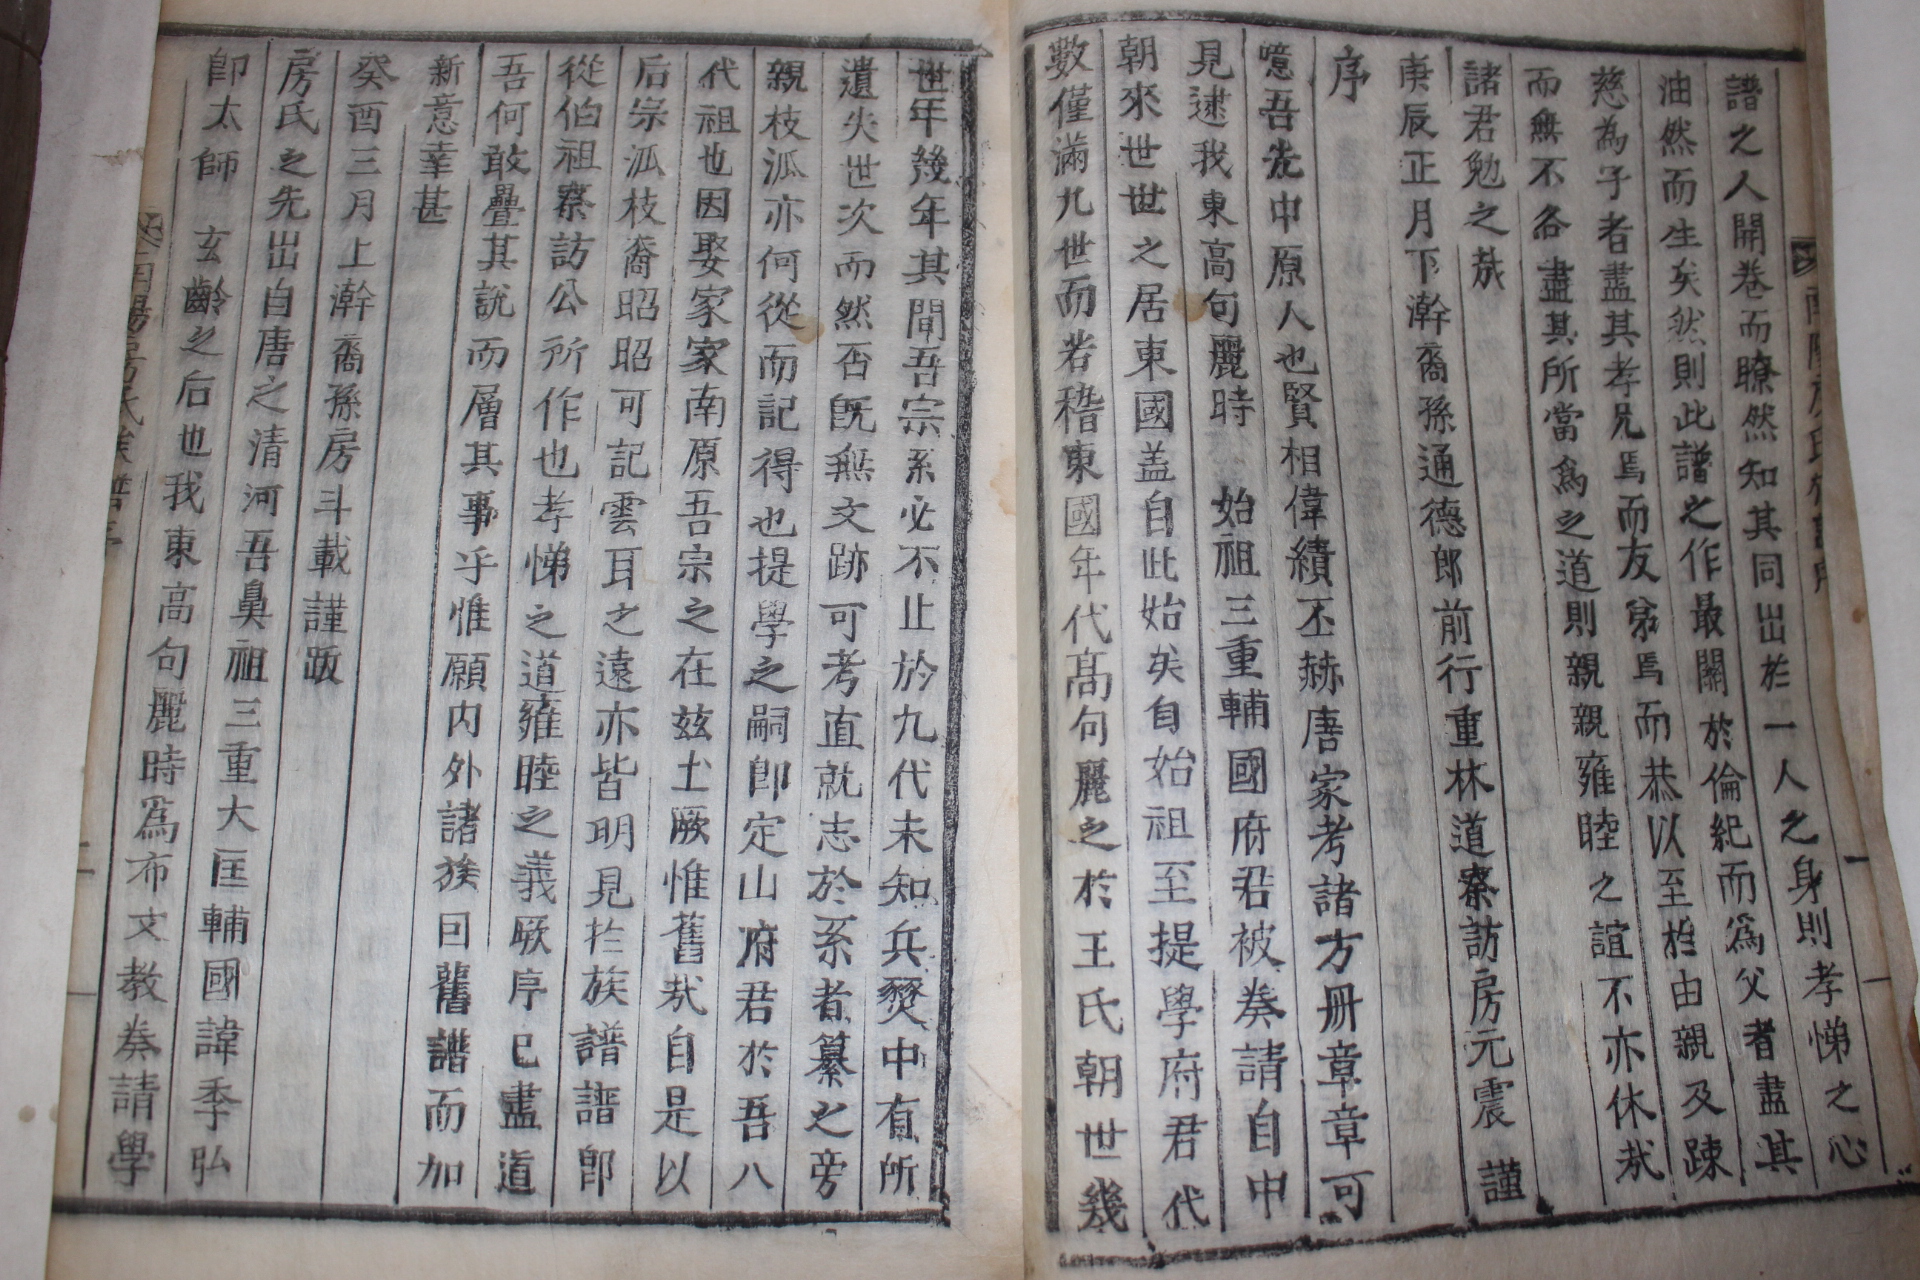 譜之人開卷而瞭然知其同出於一人之身則孝悌之心
油然而生矣然則此譜之作最關於倫紀而爲父者盡其
慈為子者盡其孝兄焉而友弟焉而恭以至於由親及踈
而無不各盡其所當爲之道則親親雍睦之誼不亦休哉
諸君勉之哉
庚辰正月下澣裔孫通德郎前行重林道察訪房元震 謹
序
噫吾先中原人也賢相偉績丕赫唐家考諸方册章章可
見逮我東高句麗時 始祖三重輔國府君被奏請自中
朝來世世之居東國盖自此始矣自始祖至提學府君代
數僅滿九世而若稽東國年代高句麗之於王氏朝世幾
世年幾年其間吾宗系必不止於九代未知兵燹中有所
遺失世次而然否旣無文跡可考直就志於系者纂之旁
親枝派亦何從而記得也提學之嗣卽定山府君於吾八
代祖也因娶家家南原吾宗之在玆土厥惟舊哉自是以
后宗派枝裔昭昭可記雲耳之遠亦皆明見於族譜譜卽
從伯祖察訪公所作也孝悌之道雍睦之義厥序已盡道
吾何敢疊其說而層其事乎惟願内外諸族因舊譜而加
新意幸甚
癸酉三月上澣裔孫房斗載謹跋
房氏之先出自唐之清河吾鼻祖三重大匡輔國諱季弘
卽太師 玄齡之后也我東高句麗時爲布文教奏請學